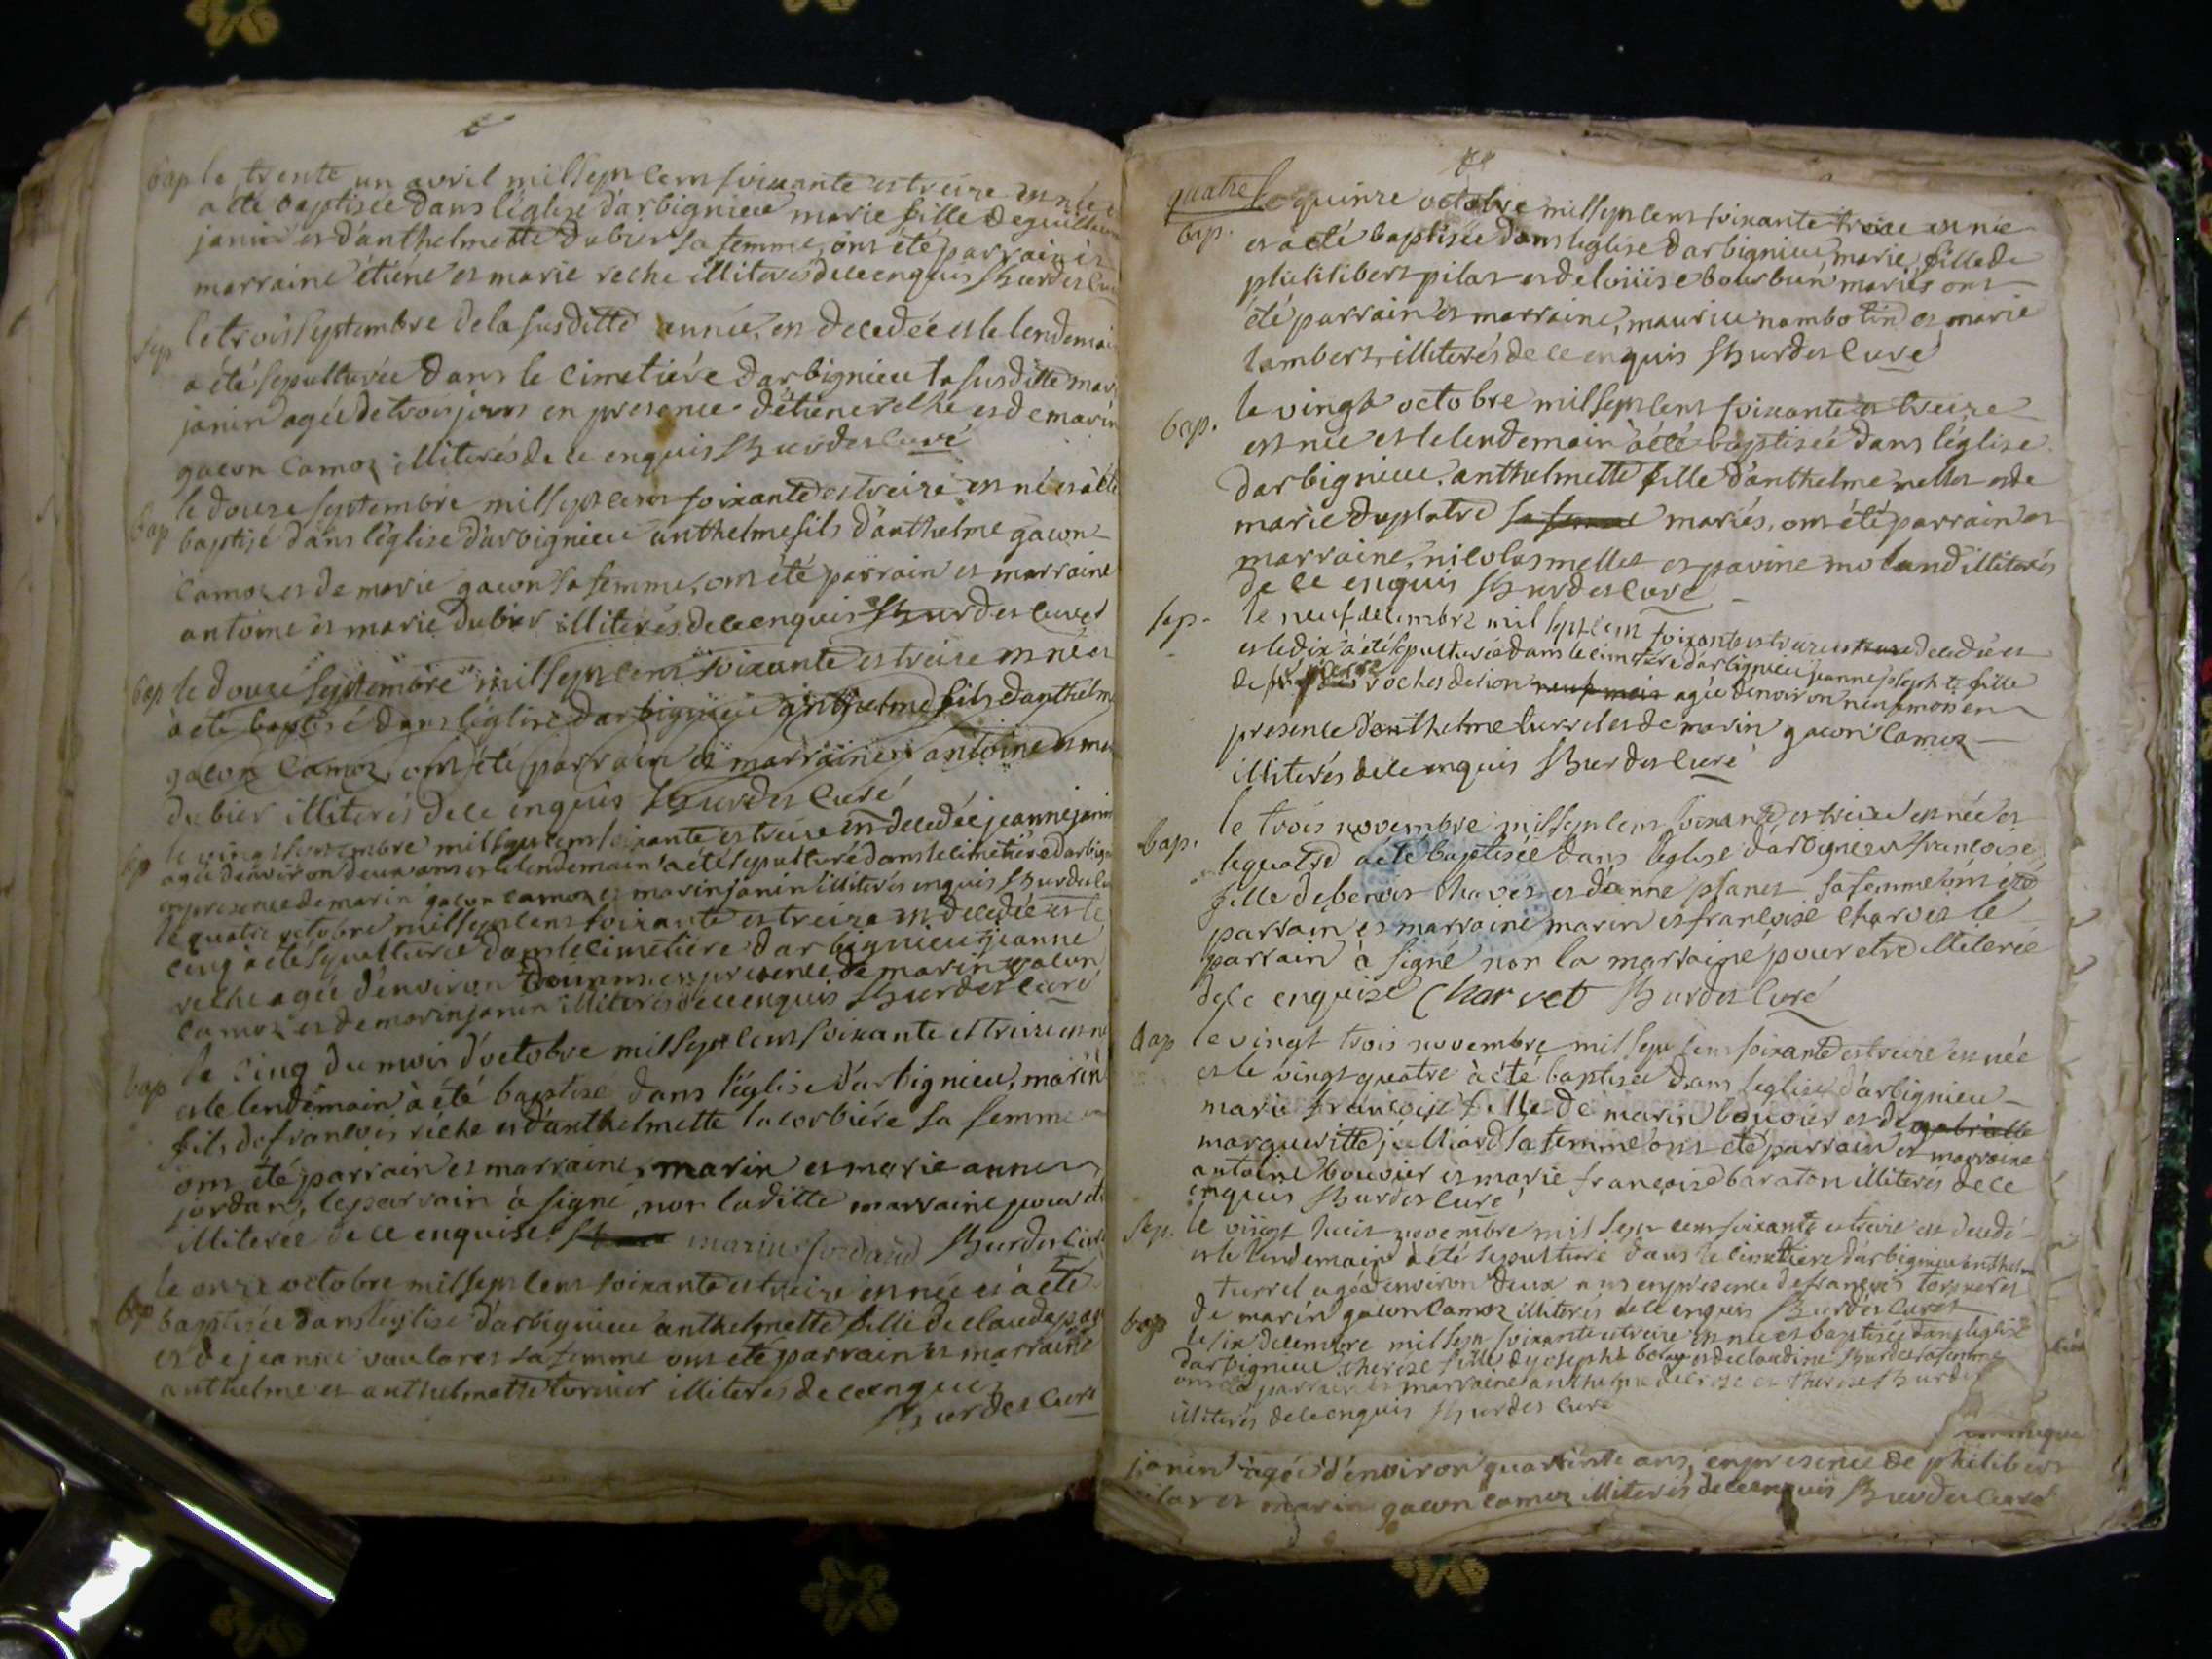 bap le trente un avril mil sept cent soixante et treize est née
a été baptisée dans léglise d'arbignieu marie fille de guillaume
janin et d'anthelmette dubier sa femme, ont été parrain et
marraine étiéne et marie reche illiterés de ce enquis hurdes curé
sep le trois septembre de la susditte année, est decedée et le lendemain
a été sepulturée dans le cimetière d'arbignieu la susditte marie
janin agée de trois jours en presence d'étiene reche et de marin
gacon camoz illiterés de ce enquis hurdes curé
bap le douze septembre mil sept cent soixante et treize est né et à été
baptisé dans léglise d'arbignieu anthelme fils d'anthelme gacon
camoz et de marie gacon sa femme, ont été parrain et marraine
antoine et marie dubier illiterés de ce enquis hurdes curé
bap le douze septembre mil sept cent soixante et treize est né et
à été baptisé dans léglise d'arbignieu anthelme fils d'anthelme
gacon camoz, ont été parrain et marraine antoine et marie
dubier illiterés de ce enquis hurdes curé
sep le vingt septembre mil sept cent soixante et treize est decedée jeanne janin
agée d'environ deux ans et le lendemain a été sepulturé dans le cimetière d'arbignieu
en presence de marin gacon camoz et marin janin illiterés enquis hurdes curé
le quatre octobre mil sept cent soixante et treize est decedée et le
cinq a été sepulturée dans le cimetière d'arbignieu jeanne
reche agée d'environ en presence de marin gacon
camoz et de marin janin illiterés de ce enquis hurdes curé
bap le cinq du mois d'octobre mil sept cent soixante et treize est né
et le lendemain à été baptisé dans léglise d'arbignieu, marin
fils de francois reche et d'anthelmette lacorbiére sa femme
ont été parrain et marraine, marin et marie anne
jordan, le parrain à signé, non laditte marraine pour etre
illiterée de ce enquise marin jordand hurdes curé
bap le onze octobre mil sept cent soixante et treize est née et à été
baptisée dans léglise d'arbignieu anthelmette fille de claude
et de jeanne sa femme ont été parrain et marraine
anthelme et anthelmette illiterés de ce enquis
hurdes curé
quatre
bap. Le quinze octobre mil sept cent soixante treize est née
et à été baptisée dans léglise d'arbignieu, marie, fille de
philibert pilat et de loüise bourbun mariés ont
été parrain et marraine, maurice nambotin et marie
lambert, illiterés de ce enquis hurdes curé
bap. le vingt octobre mil sept cent soixante et treize
est née et le lendemain à été baptisée dans léglise
d'arbignieu, anthelmette fille d'anthelme mellet et de
marie duplatre sa femme mariés, ont été parrain et
marraine, nicolas mellet et pavine moland illiterés
de ce enquis hurdes curé
sep. le neuf decembre mil sept cent soixante et treize decedée et
et le dix à été sepulturée dans le cimetière d'arbignieu jeanne joseph te fille
de pierre roches de lion neuf mois agée d'environ neuf mois en
presence d'anthelme turrel et de marin gacon camoz
illiterés de ce enquis hurdes curé
bap. le trois novembre mil sept cent soixante et treize est née et
le quatre a été baptisée dans léglise d'arbignieu francoise
fille de benoit charvet et d'anne planet sa femme ont été
parrain et marraine marin et francoise charvet le
parrain à signé non la marraine pour etre illiterée
de ce enquise Charvet hurdes curé
bap le vingt trois novembre mil sept cent soixante et treize est née
et le vingt quatre à été baptisée dans léglise d'arbignieu
marie francoise fille de marin bouvier et de gabrielle
margueritte juilliard sa femme ont été parrain et marraine
antoine bouvier et marie françoise baraton illiterés de ce
enquis hurdes curé
sep. le vingt huit novembre mil sept cent soixante et treize est decedé
et le lendemain à été sepulturé dans le cimetière d'arbignieu anthelme
turrel agé d'environ deux ans en presence de françois et
de marin gacon camoz illiterés de ce enquis hurdes curé
bap le six decembre mil sept soixante et treize est née et baptisée dans léglise
d'arbignieu therese fille de joseph et de claudine hurdes sa femme
ont été parrain et marraine anthelme et therese hurdes
illiterés de ce enquis hurdes curé
janin agée d'environ quarante ans, en presence de philibert
pilat et marin gacon camoz illiterés de ce enquis hurdes curé